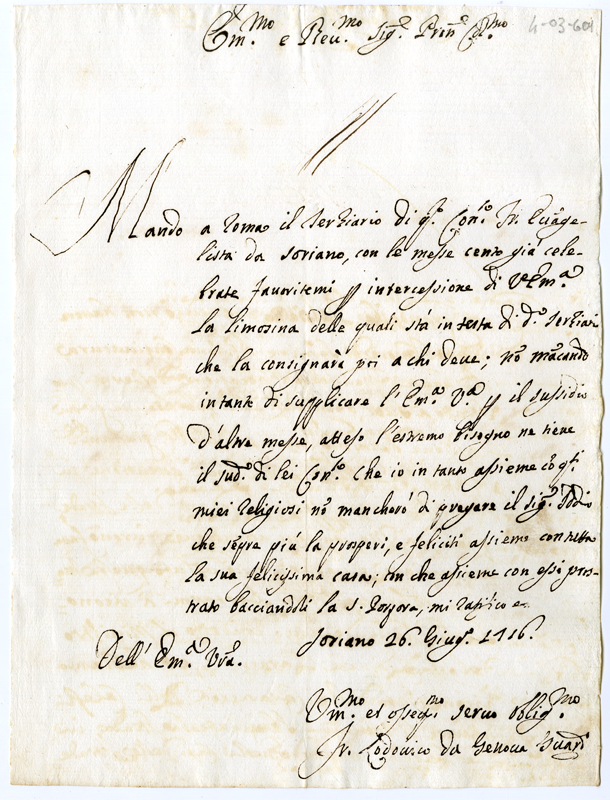 Em.mo e Reu.mo Sig.r Pron.e Col.mo
4-03-601
Mando a Roma il Tertiario di q.o Con.to Fr. Euãge-
lista da Soriano, con le messe cento già cele-
brate fauoritemi p intercessione di V. Em.a
La limosina delle quali stà in testa di d.o Tertiar
che la consignarà poi a chi deue; nõ mãcando
intanto di supplicare l'Em.a V.a p il sussidio
d'altre messe, atteso l'estremo bisogno ne tiene
il sud.o di lei Con.to Che io in tanto assieme cõ q.ti
miei religiosi nõ mancherò di pregare il Sig.r Iddio
che sẽpre più la prosperi, e feliciti assieme con tutta
la sua felicissima casa; con che assieme con essi pros-
trato bacciandoli la S. Porpora, mi ratifico
Soriano 26. Giug.o 1716.
Dell' Em.a Vrã.
Vm.mo et osseq.mo seruo oblig.mo
Fr. Lodouico da Genoua Guard